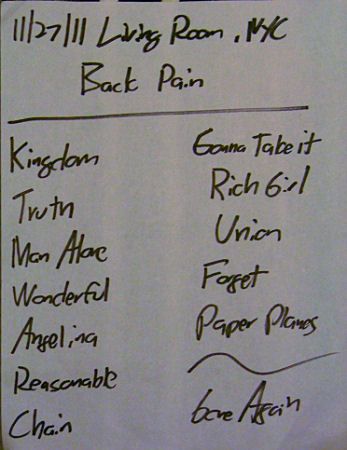 11/27/11 Living Room, NYC
Back Pain
Kingdom
Truth
Man Alone
Wonderful
Angelina
Reasonable
Chain
Gonna Take it
Rich Girl
Union
Forget
Paper Planes
Gone Again